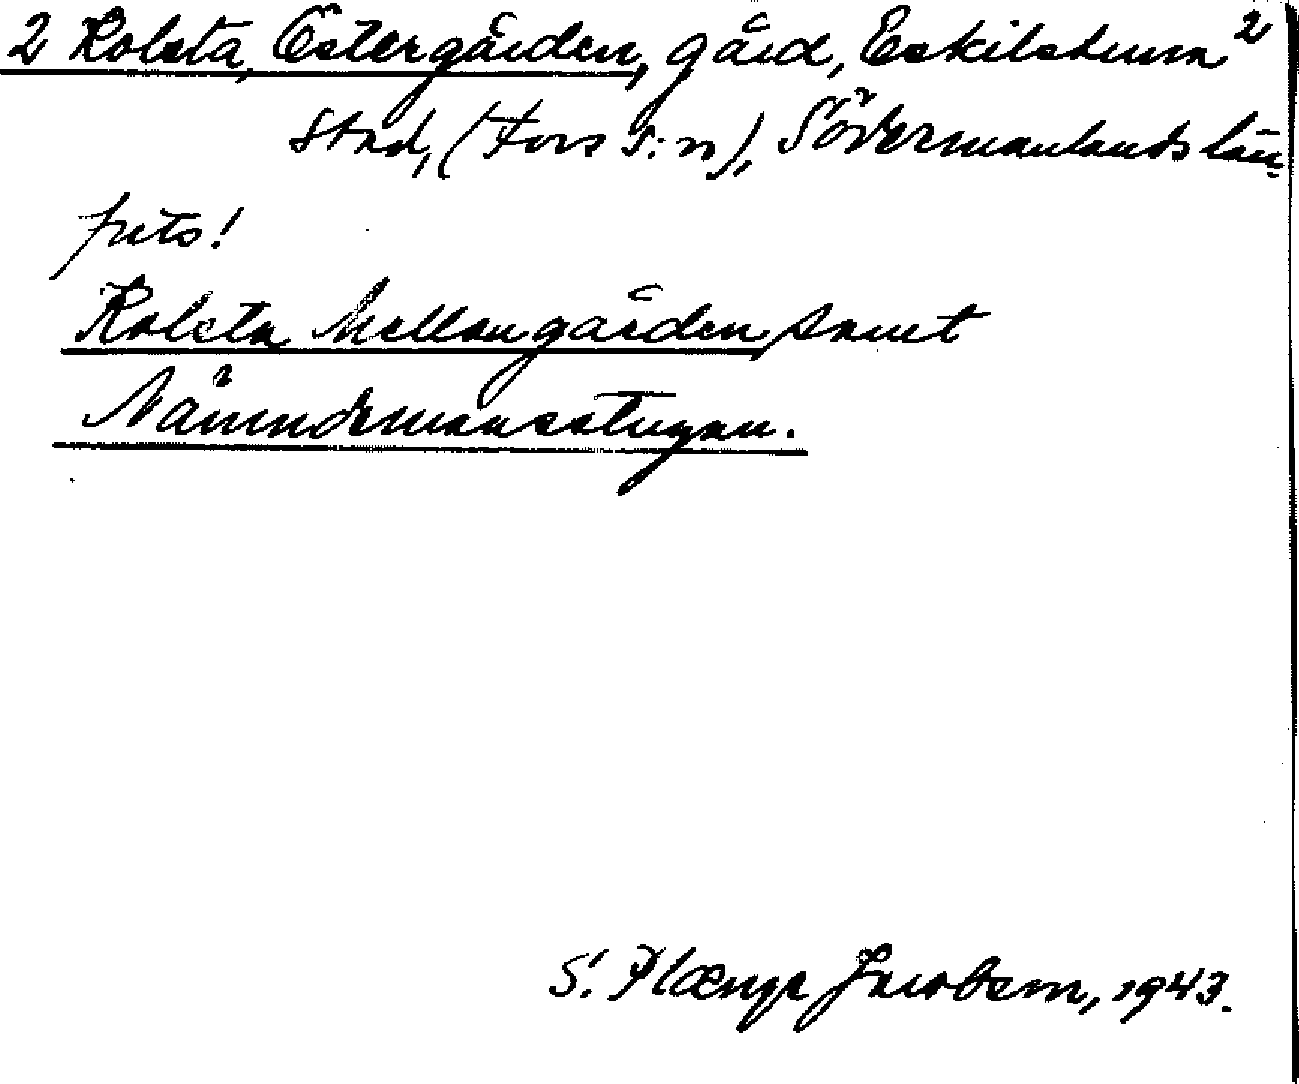 2 Rolsta, Östergården, gård, Eskilstuna 2
stad, (Fors s:n), Södermanlands län.
forts!
Rolsta Mellangården samt
Nämndemansstugan.
S. Plænge Jacobson, 1943.